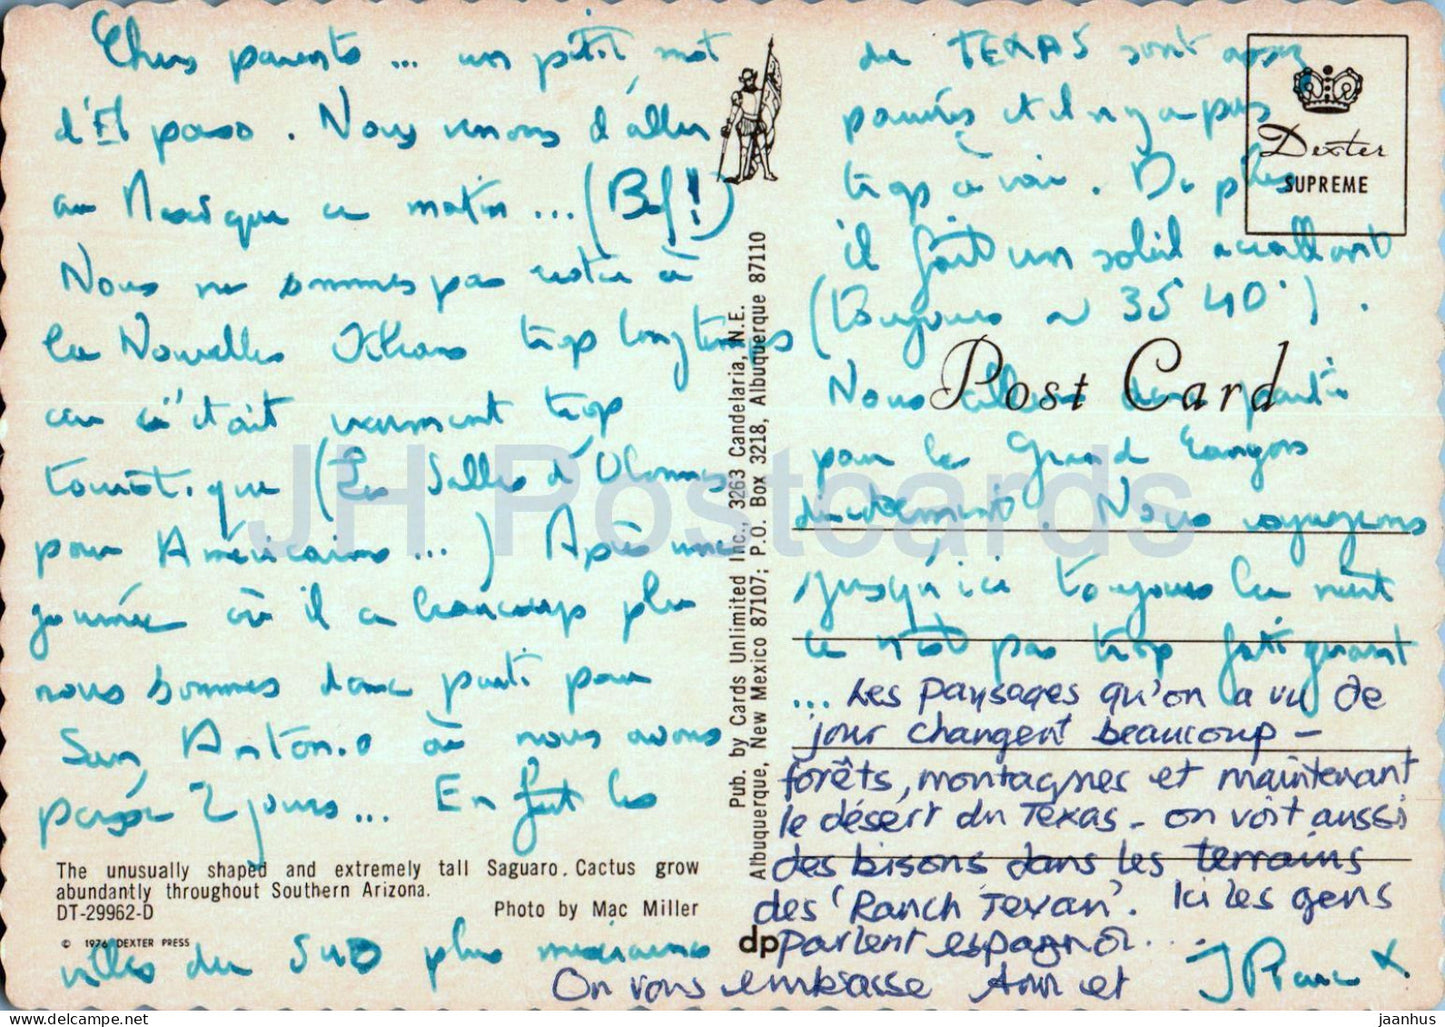 Chers parents ... un petit mot
d'El paso. Nous venons d'aller
au Mexique ce matin ... (Bof!)
Nous ne sommes pas resté à
la Nouvelle Orléans trop longtemps
car c'était vraiment trop
touristique (Les Sables d'Olonnes
pour Américains ...) Après une
journée où il a beaucoup plu
nous sommes donc parti pour
San Antonio où nous avons
passé 2 jours ... En fait les
The unusually shaped and extremely tall Saguaro Cactus grow
abundantly throughout Southern Arizona.
DT-29962-D Photo by Mac Miller
© 1976 DEXTER PRESS
villes du SUD plus mexicaines
Pub. by Cards Unlimited Inc., 3263 Candelaria, N.E.
Albuquerque, New Mexico 87107; P.O. Box 3218, Albuquerque 87110
dp
Dexter
SUPREME
Post Card
du TEXAS sont assez
pauvres et il n'y a pas
trop à voir. De plus
il fait un soleil accablant
(Toujours ~ 35 40°).
Nous allons donc partir
pour le Grand Canyon
directement. Nous voyageons
jusqu'ici toujours la nuit
ce n'est pas trop fatiguant
... Les paysages qu'on a vu de
jour changent beaucoup -
forêts, montagnes et maintenant
le désert du Texas - on voit aussi
des bisons dans les terrains
des 'Ranch Texan'. Ici les gens
parlent espagnol ...
On vous embrasse et
JH Postcards
jaanhus
delcampe.net